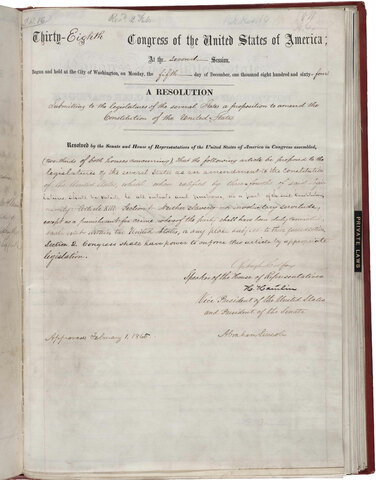 Thirty-Eighth Congress of the United States of America;
At the second Session,
Begun and held at the City of Washington, on Monday, the fifth day of December, one thousand eight hundred and sixty-four
A RESOLUTION
Submitting to the legislatures of the several States a proposition to amend the
Constitution of the United States
Resolved by the Senate and House of Representatives of the United States of America in Congress assembled,
(two thirds of both houses concurring), That the following article be proposed to the
legislatures of the several states as an amendment to the constitution
of the United States, which, when ratified by three fourths of said
shall be valid, to all intents and purposes, as a part of the said constitution
Article XIII. Section 1. Neither slavery nor involuntary servitude,
except as a punishment for crime whereof the party shall have been duly convicted,
shall exist within the United States, or any place subject to their jurisdiction
Section 2. Congress shall have power to enforce this article by appropriate
legislation.
Speaker of the House of Representatives
H Hamlin
Vice President of the United States
and President of the Senate
Approved February 1, 1865.
Abraham Lincoln
PRIVATE LAWS